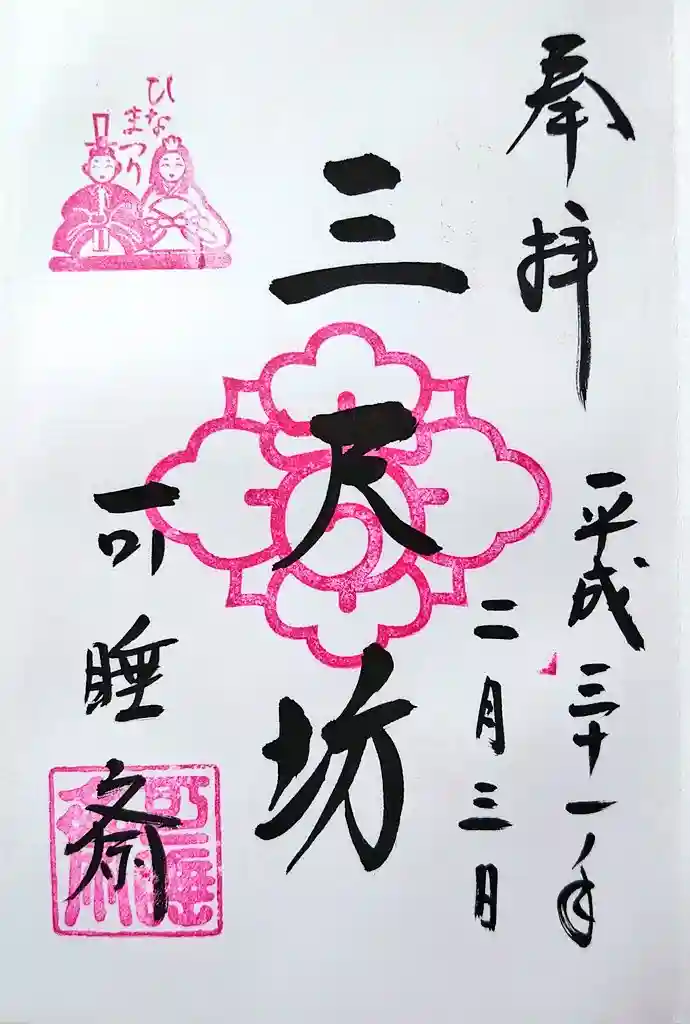 奉拝
平成三十一年
二月三日
三尺坊
可睡斎
ひな
まつり